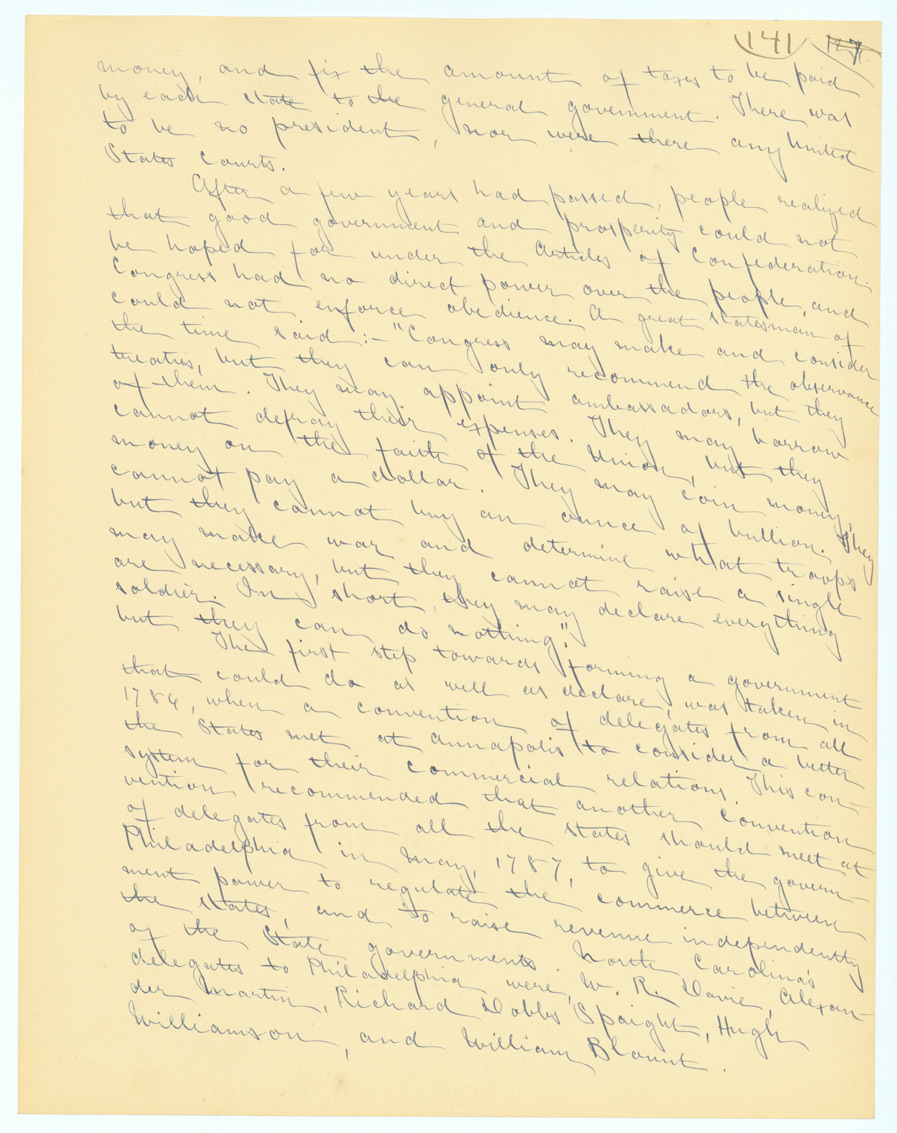 141
money, and fix the amount of taxes to be paid
by each state to the general government. There was
to be no president, nor were there any United
States Courts.
After a few years had passed, people realized
that good government and prosperity could not
be hoped for under the Articles of Confederation.
Congress had no direct power over the people, and
could not enforce obedience. A great statesman of
the time said:- "Congress may make and consider
treaties, but they can only recommend the observance
of them. They may appoint ambassadors, but they
cannot defray their expenses. They may borrow
money on the faith of the Union, but they
cannot pay a dollar. They may coin money,
but they cannot buy an ounce of bullion. They
may make war and determine what troops
are necessary, but they cannot raise a single
soldier. In short, they may declare everything
but they can do nothing."
The first step towards forming a government
that could do as well as declare, was taken in
1786, when a convention of delegates from all
the states met at Annapolis to consider a better
system for their commercial relations. This con-
vention recommended that another convention
of delegates from all the states should meet at
Philadelphia in May, 1787, to give the govern-
ment power to regulate the commerce between
the states, and to raise revenue independently
of the State governments. North Carolina's
delegates to Philadelphia were, W. R. Davie, Alexan-
der Martin, Richard Dobbs Spaight, Hugh
Williamson, and William Blount.